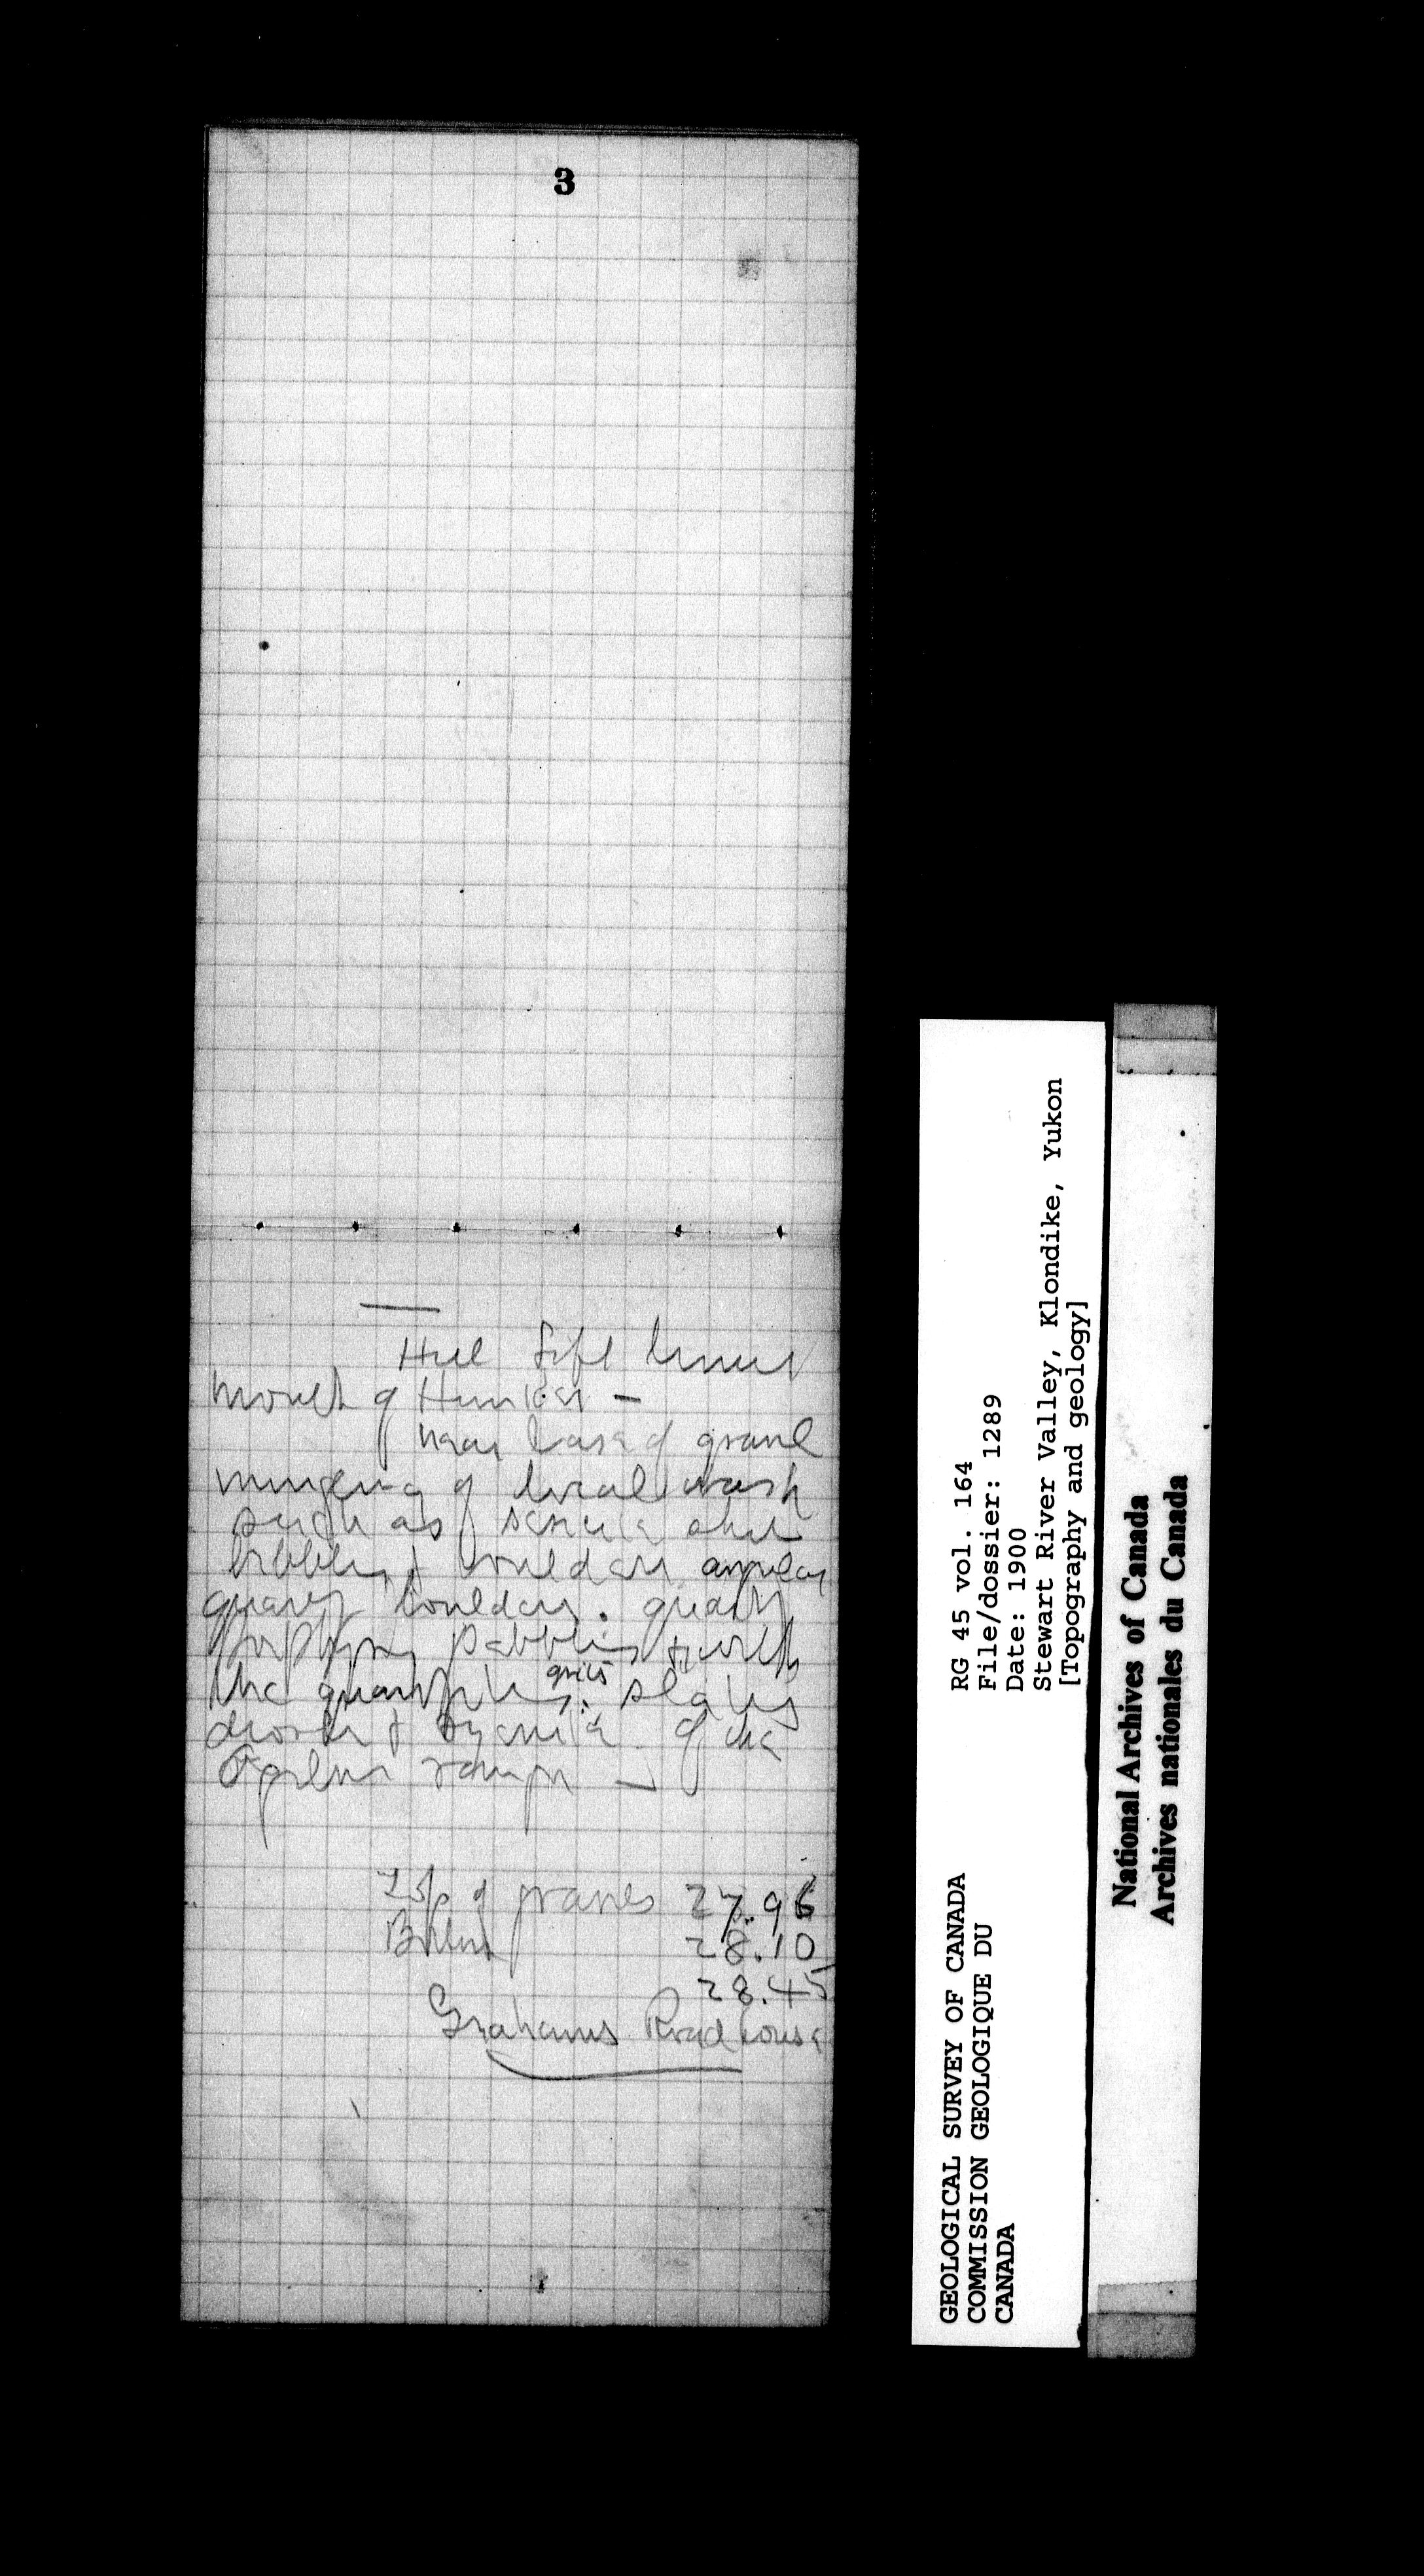 3
Hill left limit
mouth of Hunker —
Near base of gravel
mingling of local wash
such as sericite schist
pebbles & boulders angular
quartz boulders. quartz
porphyry pebbles with
the quartzites, grits slates
diorite & syenite of the
Ogilvie range —
Top of gravels 27.96
Bottom 28.10
28.45
Grahams Roadhouse
GEOLOGICAL SURVEY OF CANADA
COMMISSION GEOLOGIQUE DU
CANADA
RG 45 vol. 164
File/dossier: 1289
Date: 1900
Stewart River Valley, Klondike, Yukon
[Topography and geology]
National Archives of Canada
Archives nationales du Canada